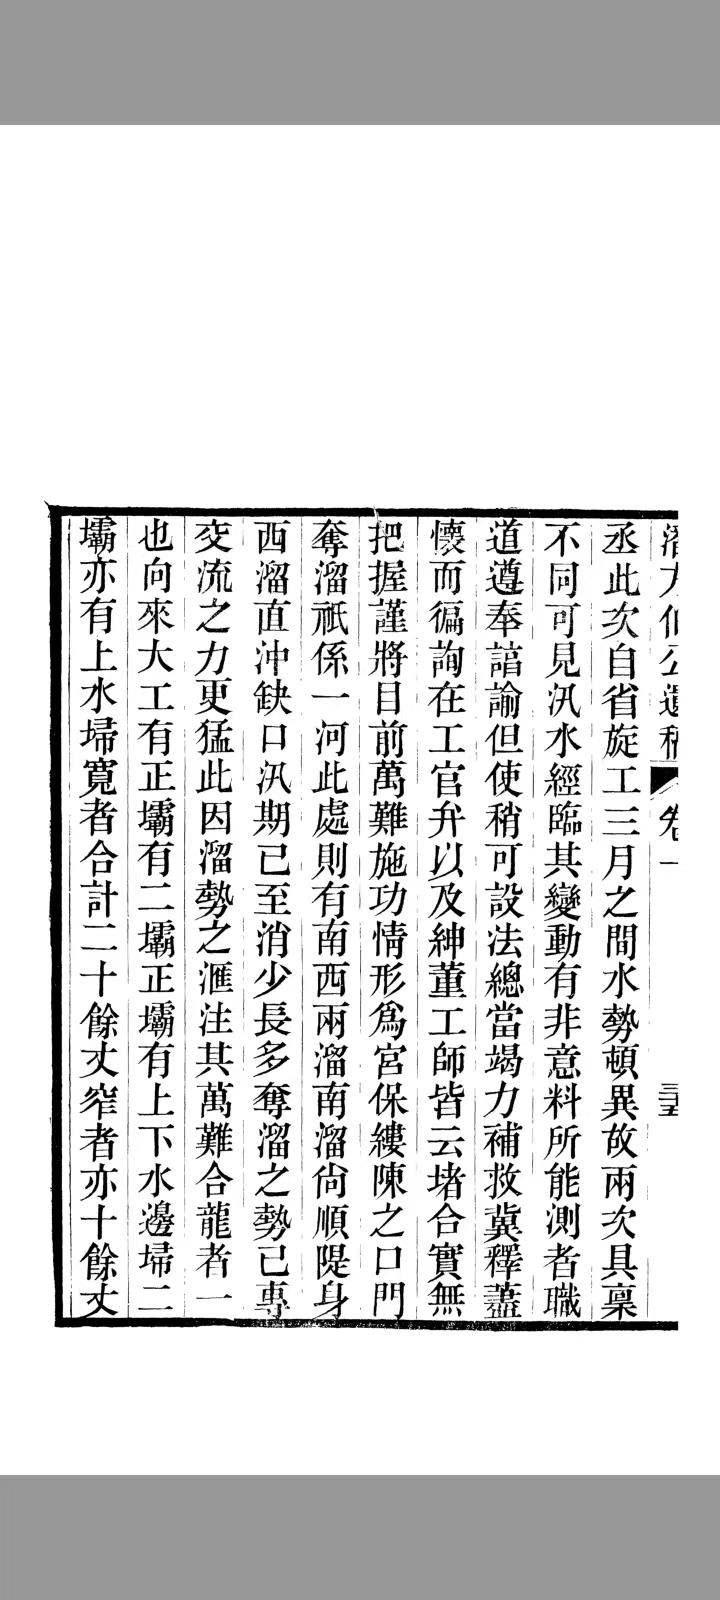 潘方伯公遺稿 卷一 三五
丞此次自省旋工三月之間水勢頓異故兩次具稟
不同可見汛水經臨其變動有非意料所能測者職
道遵奉諳諭但使稍可設法總當竭力補救冀釋藎
懷而徧詢在工官弁以及紳董工師皆云堵合實無
把握謹將目前萬難施功情形爲宮保縷陳之口門
奪溜祇係一河此處則有南西兩溜南溜尙順隄身
西溜直沖缺口汛期已至消少長多奪溜之勢已專
交流之力更猛此因溜勢之滙注其萬難合龍者一
也向來大工有正壩有二壩正壩有上下水邊埽二
壩亦有上水埽寬者合計二十餘丈窄者亦十餘丈